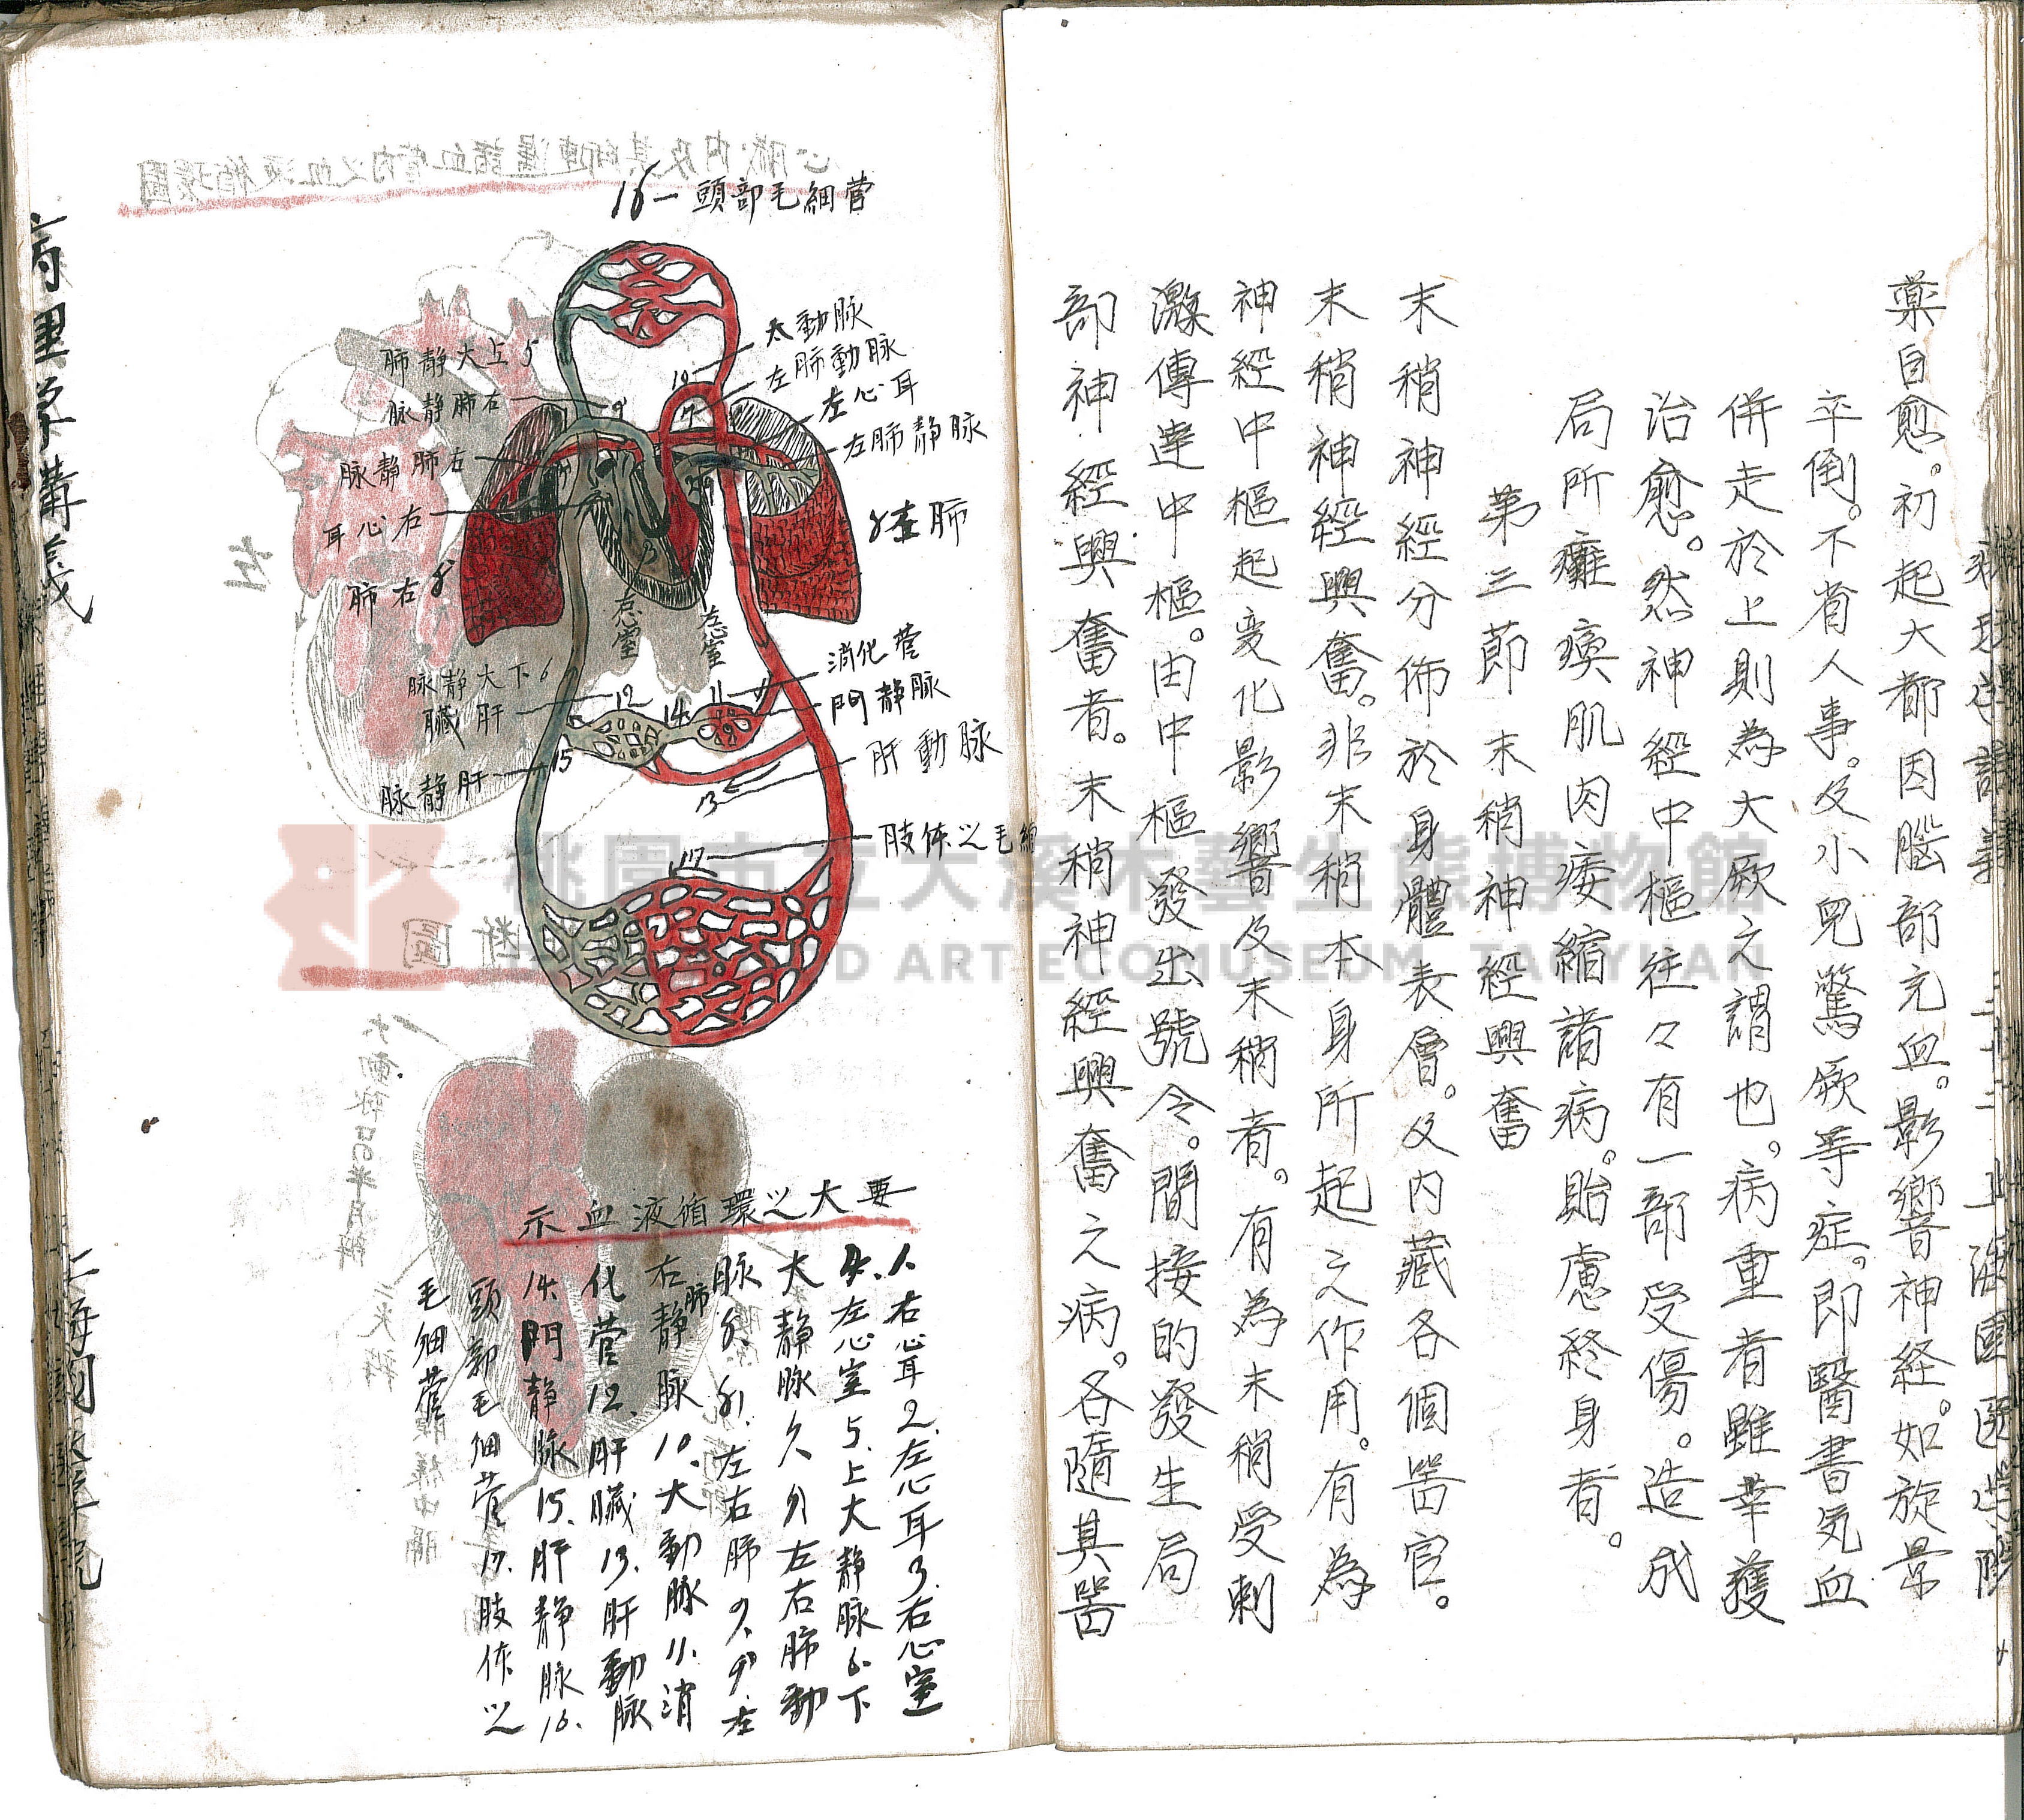 藥自愈。初起大都因腦部充血。影響神経。如旋暈
卒倒。不省人事。及小兒驚厥等症。即醫書気血
併走於上則為大厥之謂也。病重者雖幸獲
治愈。然神經中樞往々有一部受傷。造成
局所癱瘓肌肉痿縮諸病。貽慮終身者。
第三節 末稍神經興奮
末稍神經分佈於身體表層。及內藏各個器官。
末稍神經興奮。非末稍本身所起之作用。有為
神經中樞起変化影響及末稍者。有為末稍受刺
激傳達中樞。由中樞發出號令。間接的發生局
部神經興奮者。末稍神經興奮之病。各隨其器
16一頭部毛細管
大動脈
左肺動脈
左心耳
左肺静脈
8左肺
消化管
門静脈
肝動脈
肢体以毛細
肺静大上5
脉静肺右
脉静肺右
耳心右
肺右8'
脉静大下6
臓肝
脉静肝
右心室
左心室
10
9
7
3
12
11
14
15
13
17
示血液循環以大要
1.右心耳2.左心耳3.右心室
4.左心室5.上大静脉6.下
大静脉7.7'.左右肺動
脉8.8'.左右肺9.9'左
右肺静脉10.大動脉11.消
化管12.肝臓13.肝動脉
14.門静脉15.肝静脉16.
頭部毛細管17.肢体以
毛細管
病理学講義
桃園市立大溪木藝生態博物館
D ART ECOMUSEUM, TAOYUAN